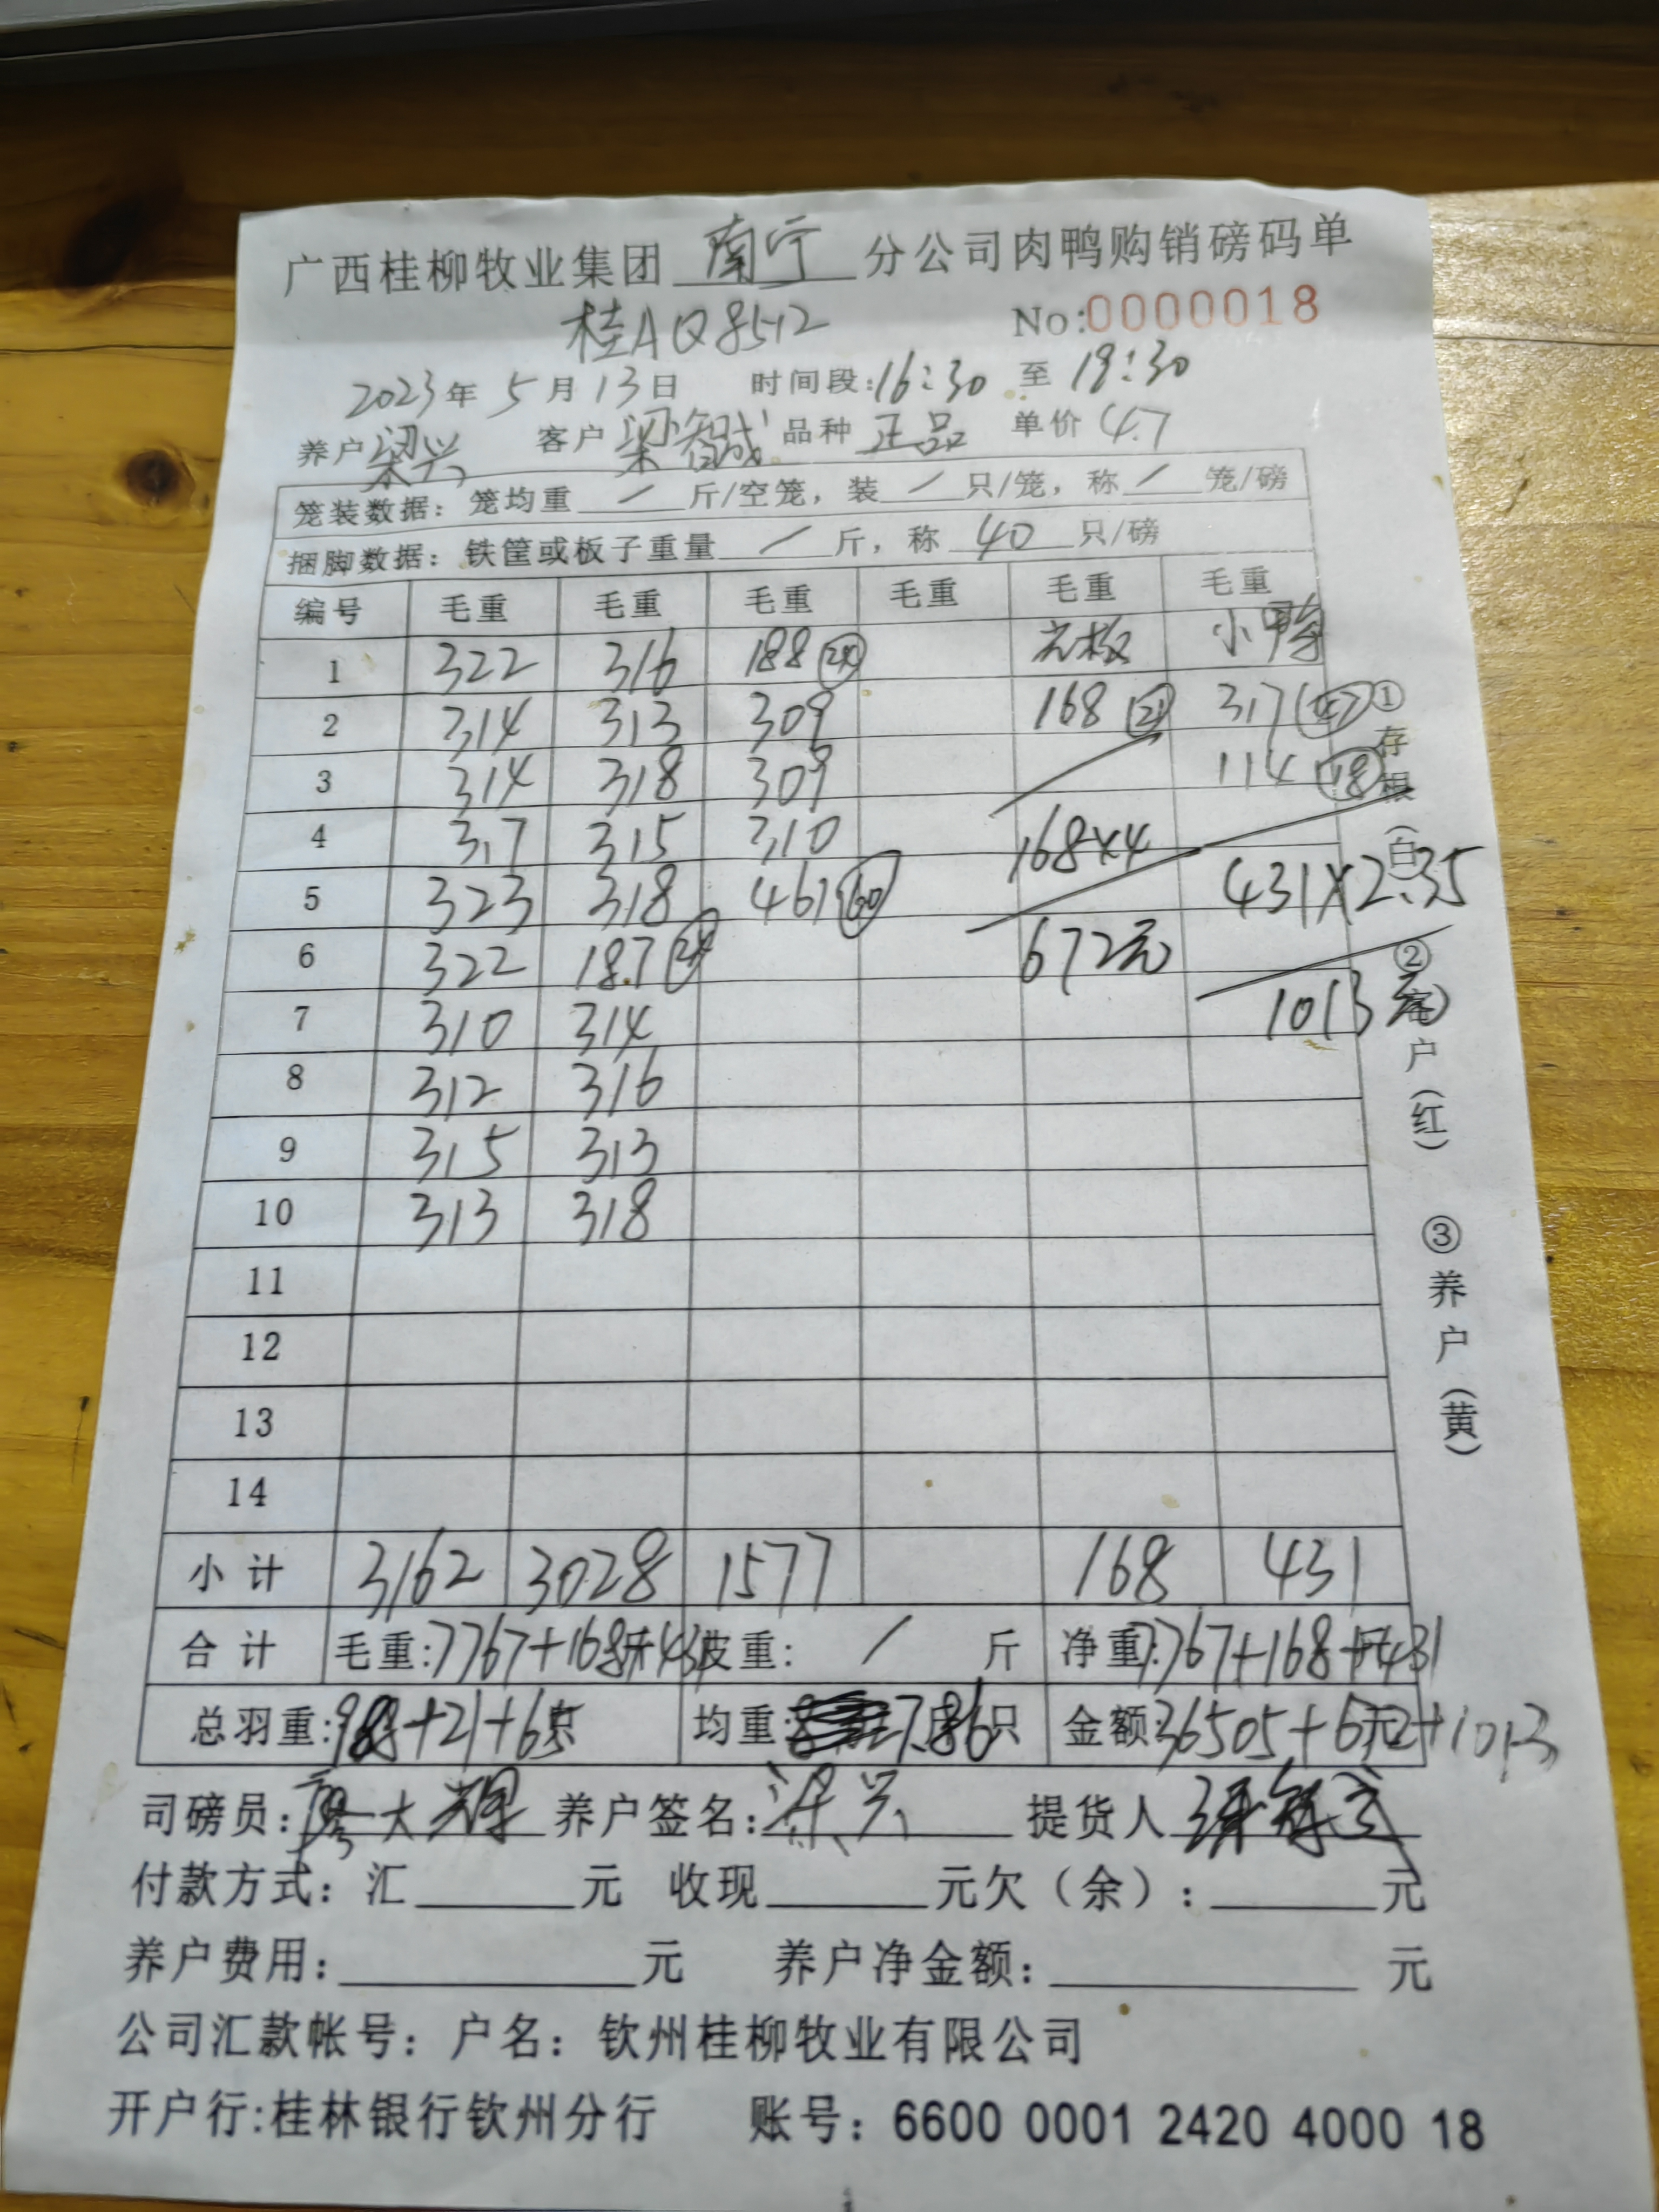 广西桂柳牧业集团 南宁 分公司肉鸭购销磅码单
桂AQ8512 No:0000018
2023年 5月 13日 时间段:16:30 至 19:30
养户 梁兴 客户 梁智诚 品种 正品 单价 4.7
笼装数据：笼均重 / 斤/空笼，装 / 只/笼，称 / 笼/磅
捆脚数据：铁筐或板子重量 / 斤，称 40 只/磅
编号 毛重 毛重 毛重 毛重 毛重 毛重
1 322 316 188 (24) 元板 小鸭
2 314 313 309 168 (21) 317 (47)
3 314 318 309 114 (18)
4 317 315 310 168×4
5 323 318 461 (60) 431×2.35
6 322 187 (24) 672元
7 310 314 1013元
8 312 316
9 315 313
10 313 318
11
12
13
14
小计 3162 3028 1577 168 431
合计 毛重:7767+168+431斤 皮重: / 斤 净重:7767+168+431斤
总羽重:988+21+65只 均重: 7.86斤/只 金额:36505+672+1013元
司磅员: 养户签名:梁兴 提货人
付款方式：汇 元 收现 元欠（余）: 元
养户费用: 元 养户净金额: 元
公司汇款帐号：户名：钦州桂柳牧业有限公司
开户行:桂林银行钦州分行 账号：6600 0001 2420 4000 18
①存根（白） ②客户（红） ③养户（黄）